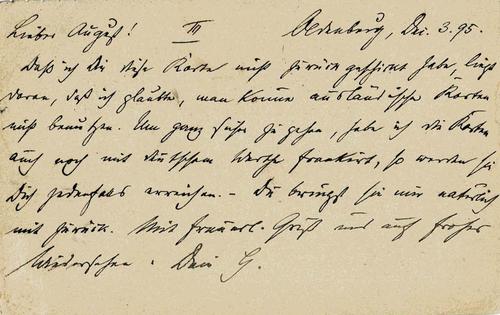 Lieber August! III Oldenburg, Dez. 3. 95.
Daß ich Dir diese Karte nicht zurück geschickt habe, liegt
daran, daß ich glaubte, man könne ausländische Karten
nicht benutzen. Um ganz sicher zu gehen, habe ich die Karten
auch noch mit deutschem Werthe frankirt, so werden sie
Dich jedenfalls erreichen. – Du bringst sie mir natürlich
mit zurück. Mit freundl. Gruß und auf frohes
Wiedersehen. Dein G.